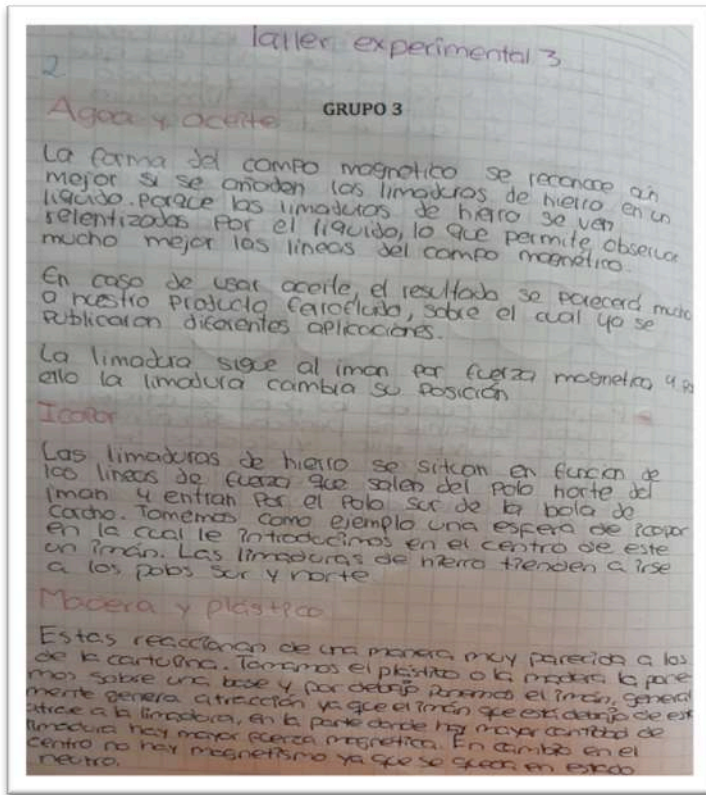 Taller experimental 3
2
Agua y aceite
GRUPO 3
La forma del campo magnetico se reconoce aún
mejor si se añaden las limaduras de hierro en un
liquido. Porque las limaduras de hierro se ven
relentizadas por el liquido, lo que permite observar
mucho mejor las lineas del campo magnético.
En caso de usar aceite, el resultado se parecerá mucho
a nuestro producto ferrofluido, sobre el cual ya se
publicaron diferentes aplicaciones.
La limadura sigue al iman por fuerza magnetica y
ello la limadura cambia su posición
Icopor
Las limaduras de hierro se sitúan en función de
las lineas de fuerza que salen del polo norte del
iman y entran por el polo sur de la bola de
corcho. Tomemos como ejemplo una esfera de icopor
en la cual le introducimos en el centro de este
un imán. Las limaduras de hierro tienden a irse
a los polos sur y norte
Madera y plástico
Estas reaccionan de una manera muy parecida a los
de la cartulina. Tomamos el plástico o la madera la pone
mos sobre una base y por debajo ponemos el imán, general
mente genera atracción ya que el imán que está debajo de est
atrae a la limadura, en la parte donde hay mayor cantidad de
limadura hay mayor fuerza magnética. En cambio en el
centro no hay magnetismo ya que se queda en estado
neutro.